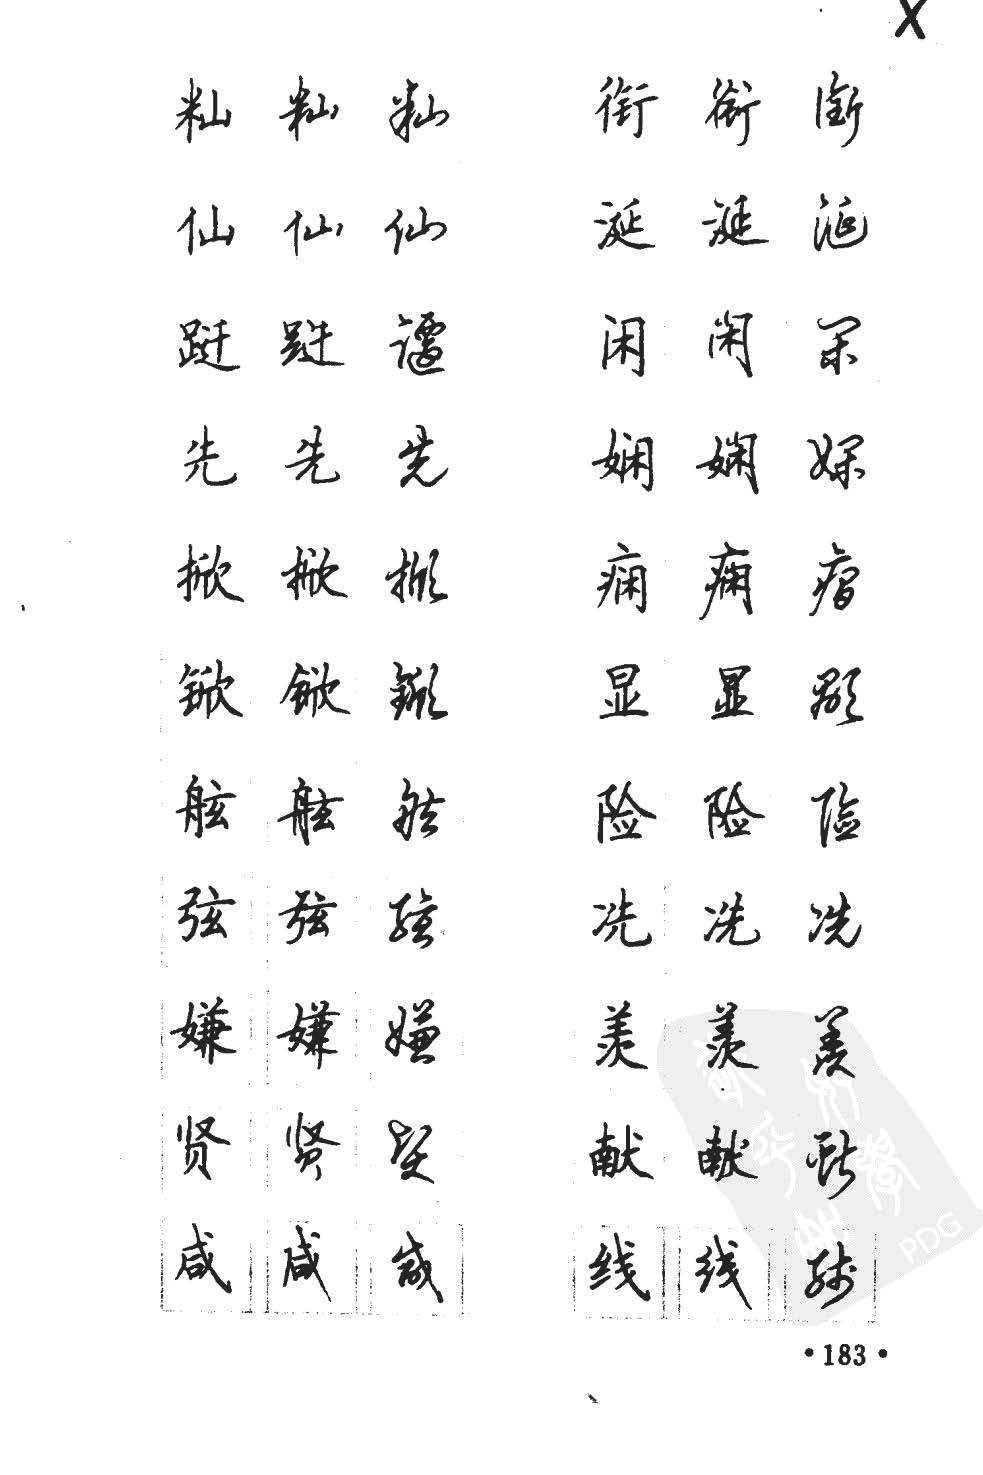 X
籼 籼 籼 衔 衔 衔
仙 仙 仙 涎 涎 涎
跹 跹 闲 闲 闲
先 先 先 娴 娴 娴
掀 掀 掀 痫 痫 痫
锨 锨 锨 显 显 顯
舷 舷 舷 险 险 险
弦 弦 弦 冼 冼 冼
嫌 嫌 嫌 羡 羡 羡
贤 贤 贤 献 献 献
咸 咸 咸 线 线 线
PDG
·183·